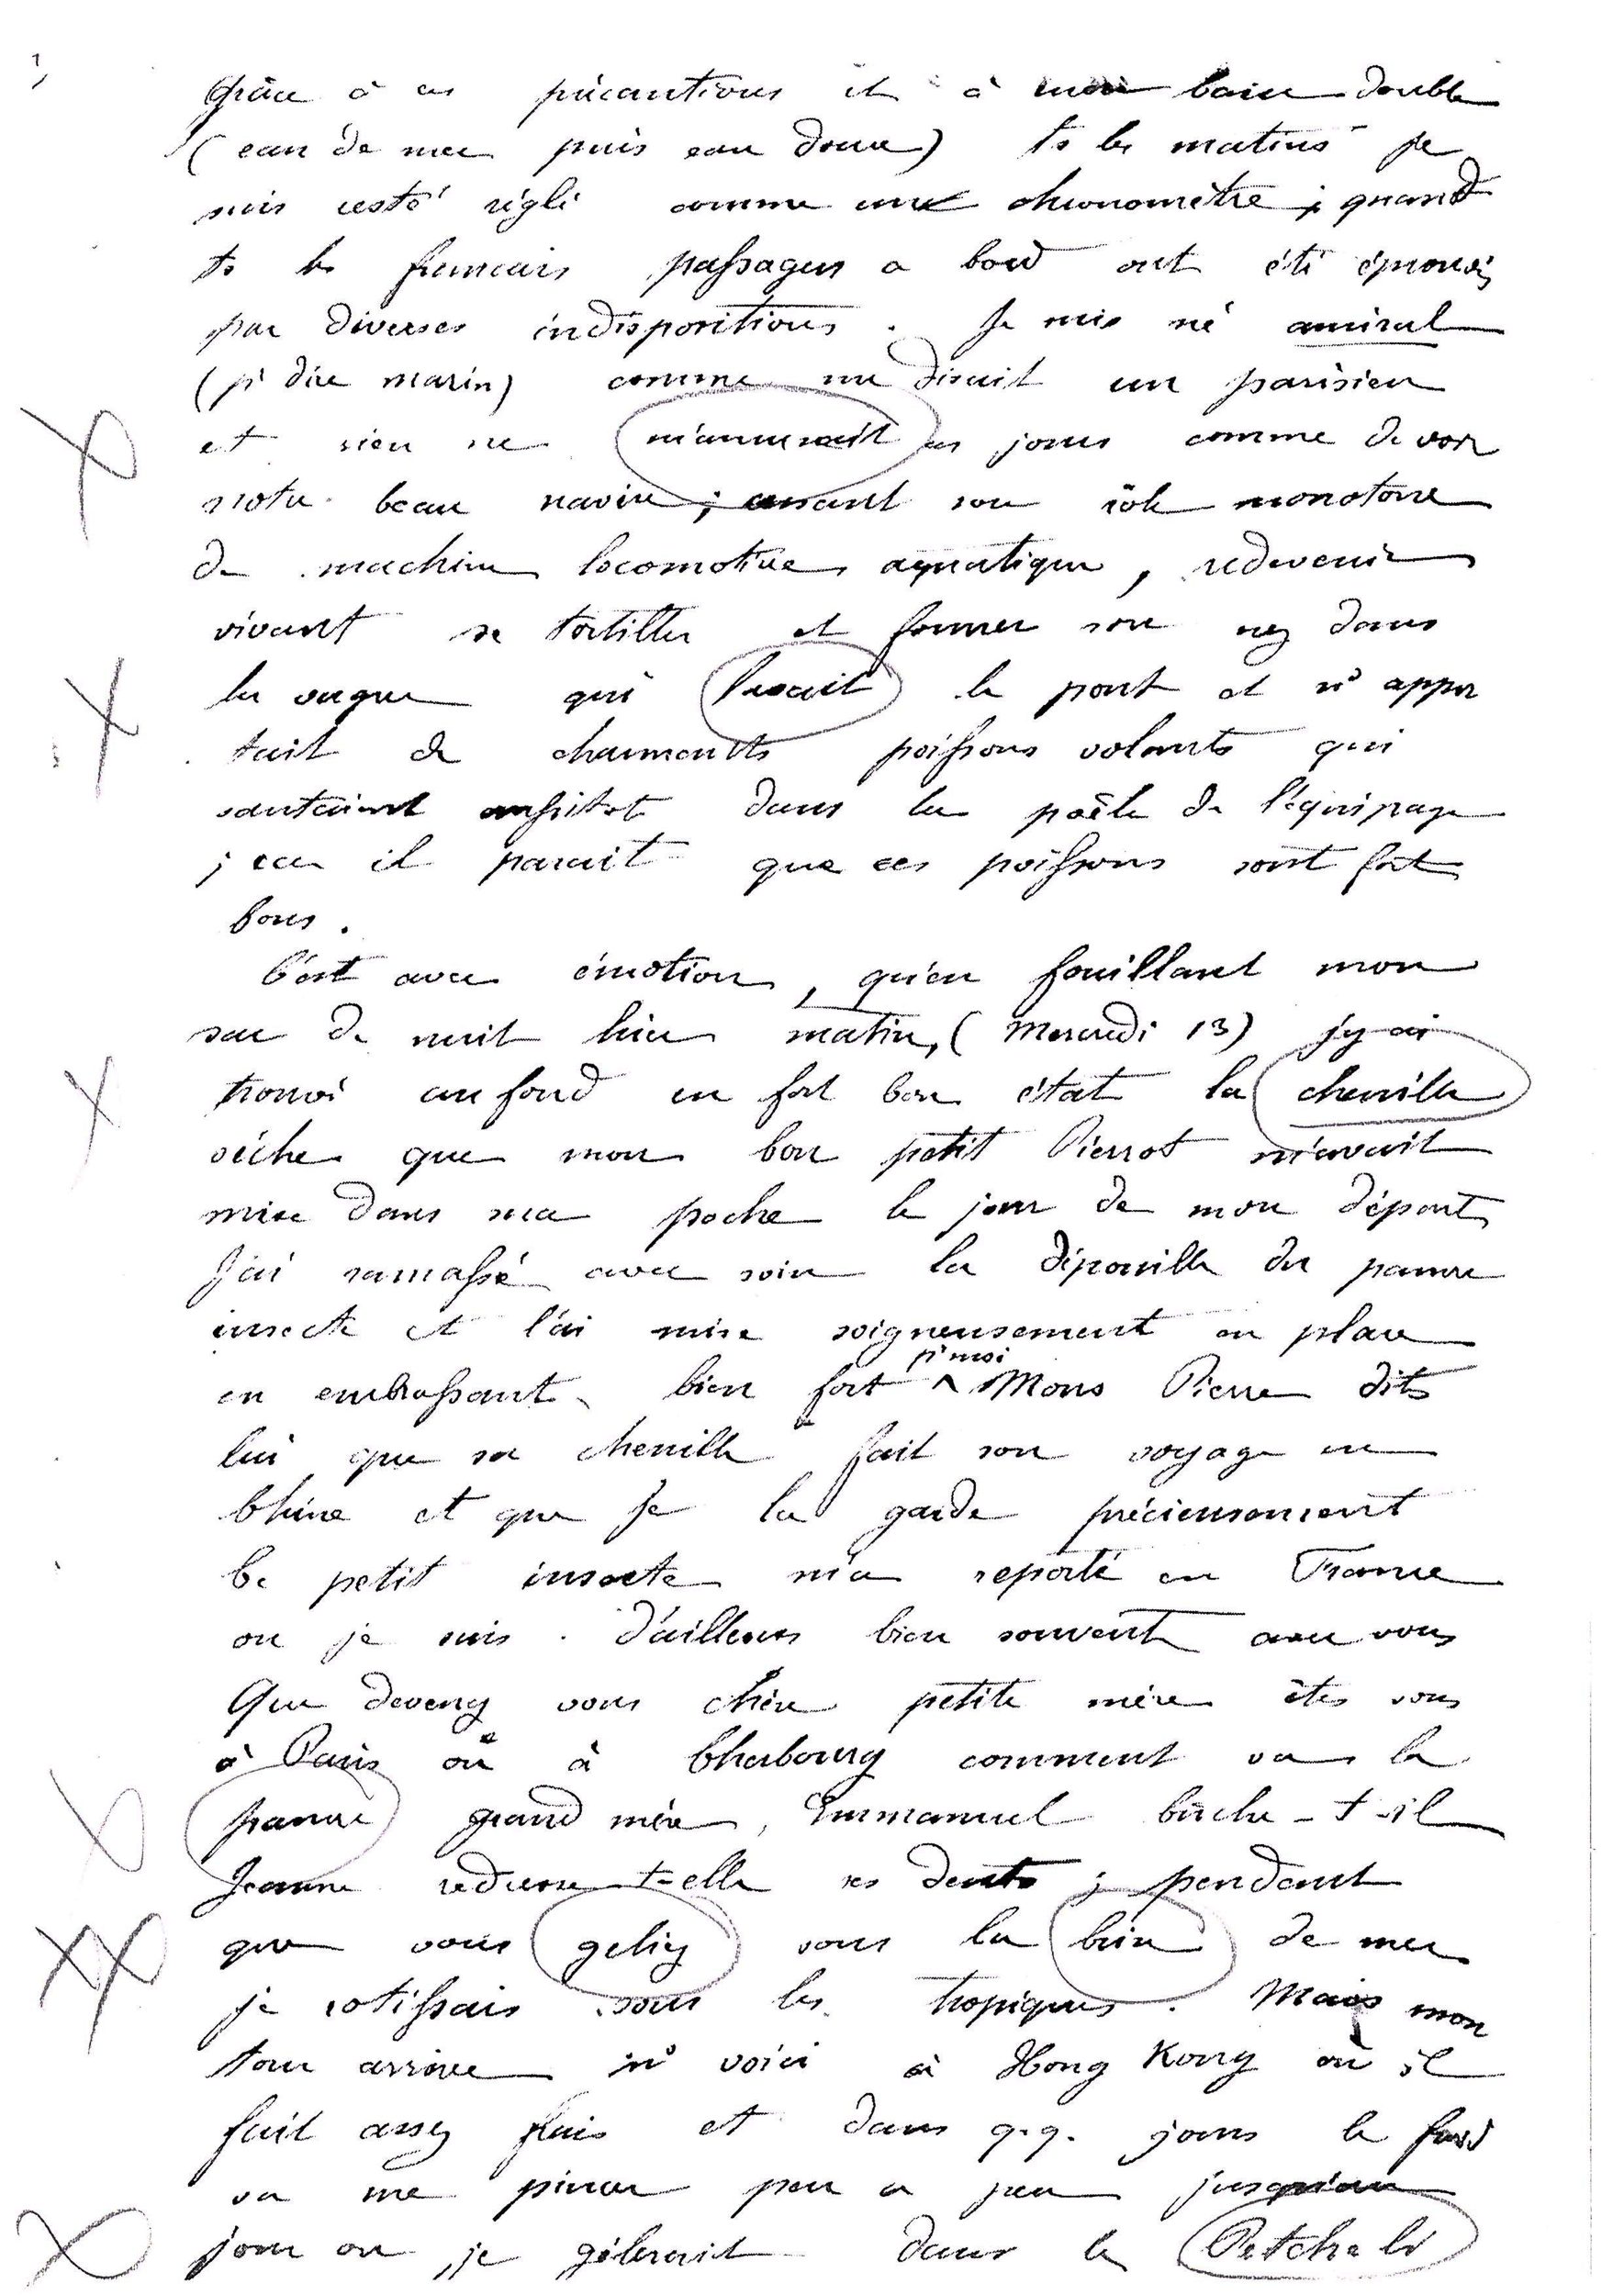 Grâce à ces précautions et à mon bain double
(eau de mer puis eau douce) ts les matins je
suis resté réglé comme un chronomètre ; quand
ts les francais passagers a bord ont été éprouvés
par diverses indispositions . Je suis né amiral
(pr dire marin) comme me disait un parisien
et rien ne m'amusait ces jours comme de voir
notre beau navire ; cessant son rôle monotone
de machine locomotive aquatique , redevenir
vivant se tortiller et fourrer son nez dans
la vague qui lavait le pont et ns appor
tait de charmants poissons volants qui
sautaient aussitot dans la poêle de l'équipage
; car il parait que ces poissons sont fort
bons .
C'est avec émotion , qu'en fouillant mon
sac de nuit hier matin, (Mercredi 13) j'y ai
trouvé au fond en fort bon état la chenille
sèche que mon bon petit Pierrot m'avait
mise dans ma poche le jour de mon départ
J'ai ramassé avec soin la dépouille du pauvre
insecte et l'ai mise soigneusement en place
en embrassant bien fort ^ pr moi Mons Pierre dits
lui que sa chenille fait son voyage en
Chine et que je la garde précieusement
Ce petit insecte m'a reporté en France
ou je suis . d'ailleurs bien souvent avec vous
Que devenez vous chère petite mère êtes vous
à Paris ou à Cherbourg comment va la
pauvre grand mère , Emmanuel bûche-t-il
Jeanne redresse t-elle ses dents ; pendant
que vous geliez sous la brise de mer
je rotissais sous les tropiques . Mais mon
tour arrive ns voici à Hong Kong où il
fait assez frais et dans q.q. jours le froid
va me pincer peu a peu jusqu'au
jour ou je gélerait dans le Petcheli